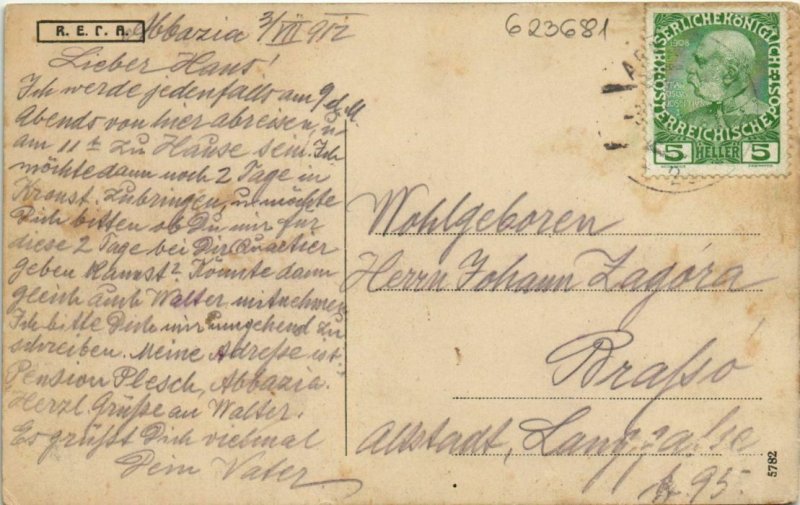 R.E.F.A.
Abbazia 3/VII 912
Lieber Hans!
Ich werde jedenfalls am 9 d. M.
Abends von hier abreisen, u.
am 11t zu Hause sein. Ich
möchte dann noch 2 Tage in
Kronst. zubringen, u. möchte
Dich bitten ob Du mir für
diese 2 Tage bei Dir Quartier
geben kannst? Könnte dann
gleich auch Walter mitnehmen
Ich bitte Dich mir umgehend zu
schreiben. Meine Adresse ist:
Pension Plesch, Abbazia.
Herzl. Grüße an Walter.
Es grüßt Dich vielmal
Dein Vater
623681
1908
KAISERLICHE KÖNIGLICHE
ÖSTERREICHISCHE POST
5 HELLER 5
Wohlgeboren
Herrn Johann Zagóra
Brassó
Altstadt, Langgasse
95.
5782